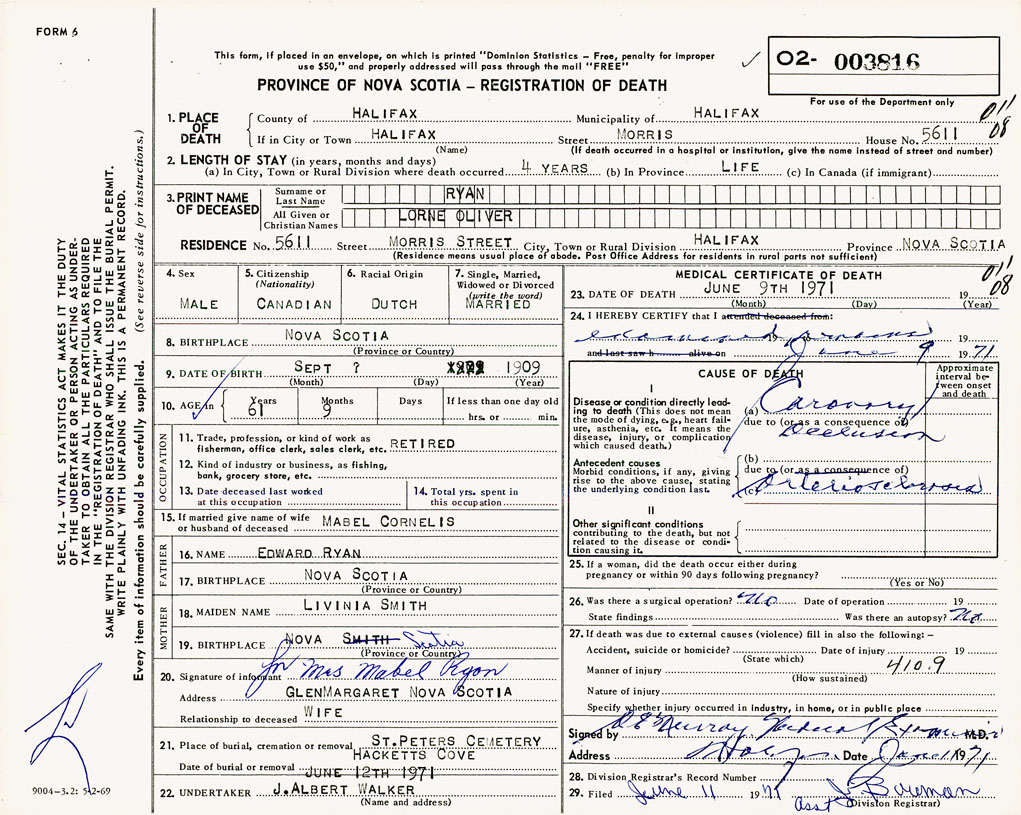 FORM 6
This form, if placed in an envelope, on which is printed "Dominion Statistics – Free, penalty for improper
use $50," and properly addressed will pass through the mail "FREE"
PROVINCE OF NOVA SCOTIA – REGISTRATION OF DEATH
02- 003816
For use of the Department only
011
08
SEC. 14 – VITAL STATISTICS ACT MAKES IT THE DUTY
OF THE UNDERTAKER OR PERSON ACTING AS UNDER-
TAKER TO OBTAIN ALL THE PARTICULARS REQUIRED
IN THE "REGISTRATION OF DEATH" AND TO FILE THE
SAME WITH THE DIVISION REGISTRAR WHO SHALL ISSUE THE BURIAL PERMIT.
WRITE PLAINLY WITH UNFADING INK. THIS IS A PERMANENT RECORD.
Every item of information should be carefully supplied. (See reverse side for instructions.)
1. PLACE OF DEATH
County of HALIFAX Municipality of HALIFAX
If in City or Town HALIFAX Street MORRIS House No. 5611
(Name) (If death occurred in a hospital or institution, give the name instead of street and number)
2. LENGTH OF STAY (in years, months and days)
(a) In City, Town or Rural Division where death occurred 4 YEARS (b) In Province LIFE (c) In Canada (if immigrant)
3. PRINT NAME OF DECEASED
Surname or Last Name RYAN
All Given or Christian Names LORNE OLIVER
RESIDENCE No. 5611 Street MORRIS STREET City, Town or Rural Division HALIFAX Province NOVA SCOTIA
(Residence means usual place of abode. Post Office Address for residents in rural parts not sufficient)
4. Sex
MALE
5. Citizenship
(Nationality)
CANADIAN
6. Racial Origin
DUTCH
7. Single, Married,
Widowed or Divorced
(write the word)
MARRIED
8. BIRTHPLACE NOVA SCOTIA
(Province or Country)
9. DATE OF BIRTH SEPT ? 1909
(Month) (Day) (Year)
10. AGE in Years 61 Months 9 Days If less than one day old
hrs. or min.
OCCUPATION
11. Trade, profession, or kind of work as
fisherman, office clerk, sales clerk, etc. RETIRED
12. Kind of industry or business, as fishing,
bank, grocery store, etc.
13. Date deceased last worked
at this occupation
14. Total yrs. spent in
this occupation
15. If married give name of wife
or husband of deceased MABEL CORNELIS
FATHER
16. NAME EDWARD RYAN
17. BIRTHPLACE NOVA SCOTIA
(Province or Country)
MOTHER
18. MAIDEN NAME LIVINIA SMITH
19. BIRTHPLACE NOVA SMITH Scotia
(Province or Country)
20. Signature of informant for Mrs Mabel Ryon
Address GLENMARGARET NOVA SCOTIA
Relationship to deceased WIFE
21. Place of burial, cremation or removal ST.PETERS CEMETERY
HACKETTS COVE
Date of burial or removal JUNE 12TH 1971
22. UNDERTAKER J.ALBERT WALKER
(Name and address)
9004-3.2: 5-2-69
MEDICAL CERTIFICATE OF DEATH
011
08
23. DATE OF DEATH JUNE 9TH 1971 19
(Month) (Day) (Year)
24. I HEREBY CERTIFY that I attended deceased from:
examined remains 19
and last saw h alive on June 9 1971
CAUSE OF DEATH
Approximate
interval be-
tween onset
and death
I
Disease or condition directly lead-
ing to death (This does not mean
the mode of dying, e.g., heart fail-
ure, asthenia, etc. It means the
disease, injury, or complication
which caused death.)
(a) Coronary
due to (or as a consequence of)
Occlusion
Antecedent causes
Morbid conditions, if any, giving
rise to the above cause, stating
the underlying condition last.
(b)
due to (or as a consequence of)
(c) Arteriosclerosis
II
Other significant conditions
contributing to the death, but not
related to the disease or condi-
tion causing it.
25. If a woman, did the death occur either during
pregnancy or within 90 days following pregnancy?
(Yes or No)
26. Was there a surgical operation? No Date of operation 19
State findings Was there an autopsy? No
27. If death was due to external causes (violence) fill in also the following: –
Accident, suicide or homicide? Date of injury 19
(State which)
Manner of injury 410.9
(How sustained)
Nature of injury
Specify whether injury occurred in industry, in home, or in public place
Signed by D E Murray Medical Examiner M.D.
Address Hfx. Date June 1971
28. Division Registrar's Record Number
29. Filed June 11 1971 J Bowman
Asst Division Registrar)